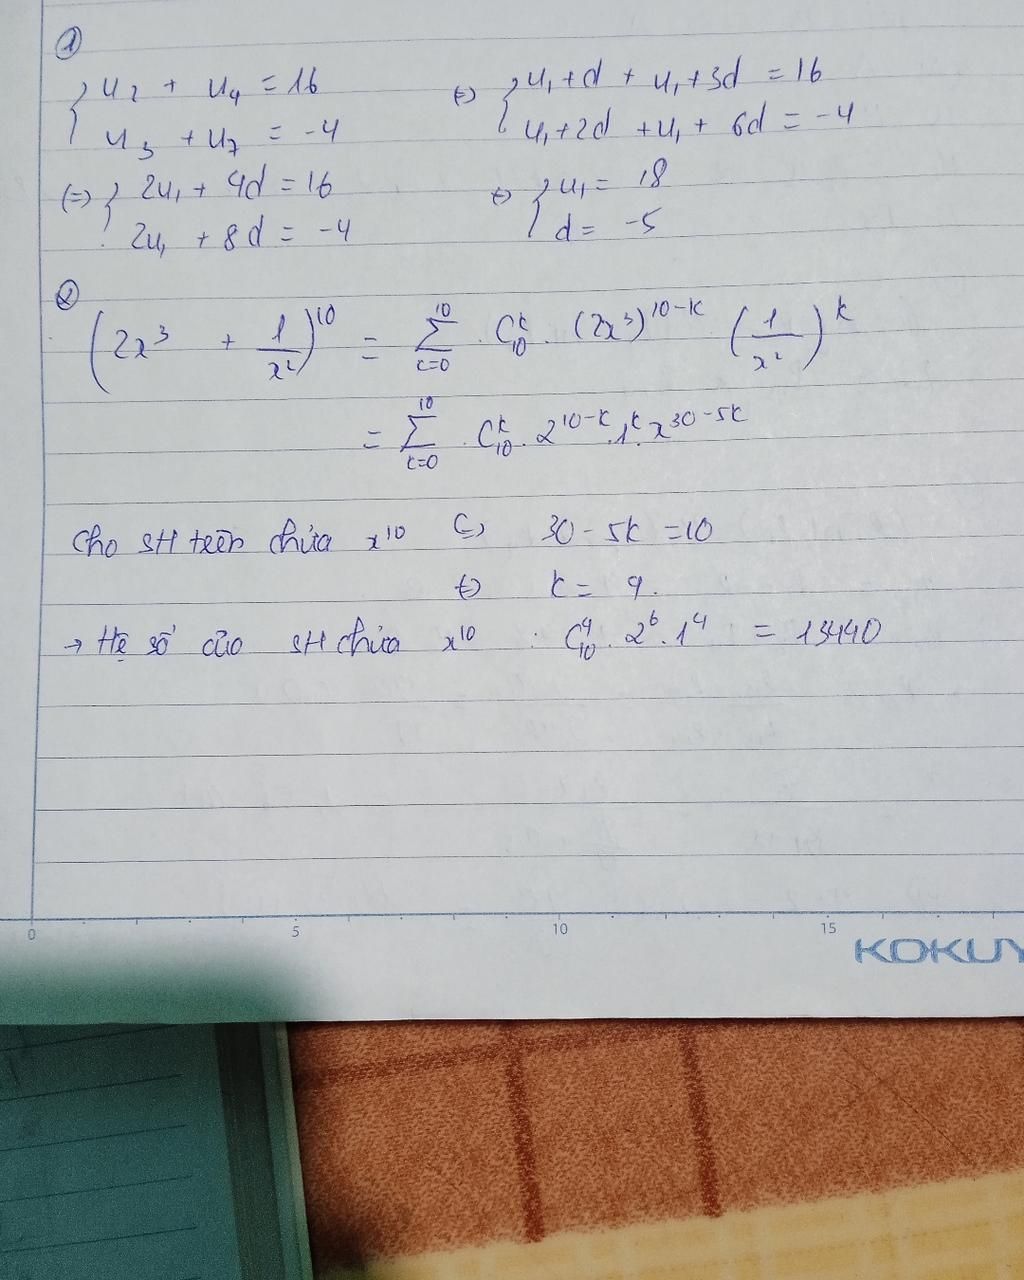 ①
{ u₂ + u₄ = 16 (=) { u₁ + d + u₁ + 3d = 16
u₃ + u₇ = -4 u₁ + 2d + u₁ + 6d = -4
(=) { 2u₁ + 4d = 16 (=) { u₁ = 18
2u₁ + 8d = -4 d = -5
②
(2x³ + 1/x²)¹⁰ = Σ_{k=0}^{10} C_{10}^{k} . (2x³)^{10-k} (1/x²)^k
= Σ_{k=0}^{10} . C_{10}^{k} . 2^{10-k} . 1^k . x^{30-5k}
Cho SH trên chứa x¹⁰ (=) 30 - 5k = 10
(=) k = 4.
→ Hệ số của SH chứa x¹⁰ : C_{10}^{4} . 2⁶ . 1⁴ = 13440
0 5 10 15
KOKUY